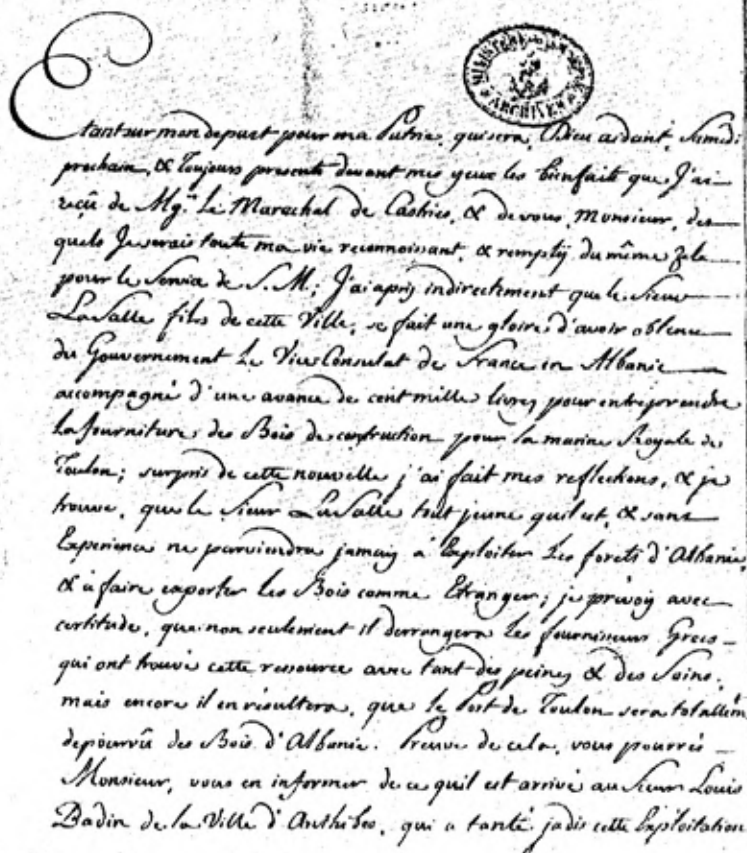 MINISTERE DE LA MARINE
ARCHIVES
Etant sur mon depart pour ma Patrie, qui sera, Dieu aidant, Samedi
prochain, & Toujours presents devant mes yeux les bienfaits que J'ai
reçû de Mgr. Le Marechal de Castries, & de vous, Monsieur, des
quels Je serais toute ma vie reconnoissant, & remply du même zele
pour le Service de S. M; J'ai apris indirectement que le Sieur
LaSalle fils de cette Ville, se fait une gloire d'avoir obtenu
du Gouvernement Le Vice Consulat de France en Albanie
accompagné d'une avance de cent mille livres pour entreprendre
La fourniture des Bois de contruction pour la marine Royale de
Toulon; surpris de cette nouvelle j'ai fait mes reflections, & je
trouve, que le Sieur LaSalle tout jeune quil est, & sans
Experience ne parviendra jamais à Exploiter Les forets d'Albanie,
& à faire exporter Les Bois comme Etranger; je prevoy avec
certitude, que non seulement il derrangera Les fournisseurs Grecs
qui ont trouvé cette ressource avec tant des peines & des Soins,
mais encore il en résultera, que le Port de Toulon sera totallem
depourvû des Bois d'Albanie. Preuve de cela, vous pourrés
Monsieur, vous en informer de ce quil est arrivé au Sieur Louis
Badin de la Ville d'Anthibes, qui a tanté jadis cette Exploitation